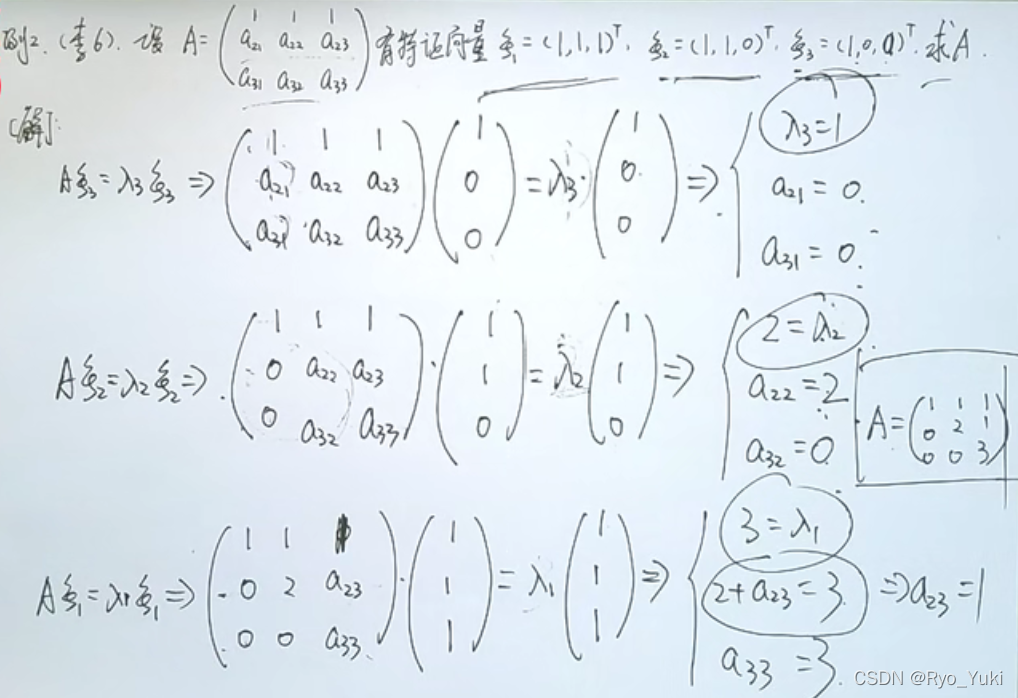 例2.(李6).设 A=(1 1 1 a₂₁ a₂₂ a₂₃ a₃₁ a₃₂ a₃₃)有特征向量 ξ₁=(1,1,1)ᵀ. ξ₂=(1,1,0)ᵀ. ξ₃=(1,0,0)ᵀ.求A.
[解]:
Aξ₃=λ₃ξ₃ ⇒ (1 1 1 a₂₁ a₂₂ a₂₃ a₃₁ a₃₂ a₃₃)(1 0 0)=λ₃·(1 0 0) ⇒ {λ₃=1
a₂₁=0.
a₃₁=0.
Aξ₂=λ₂ξ₂ ⇒ (1 1 1 0 a₂₂ a₂₃ 0 a₃₂ a₃₃)·(1 1 0)=λ₂(1 1 0) ⇒ {2=λ₂
a₂₂=2
a₃₂=0
A=(1 1 1 0 2 1 0 0 3)
Aξ₁=λ₁ξ₁ ⇒ (1 1 1 0 2 a₂₃ 0 0 a₃₃)·(1 1 1)=λ₁(1 1 1) ⇒ {3=λ₁
2+a₂₃=3. ⇒a₂₃=1
a₃₃=3.
CSDN @Ryo_Yuki